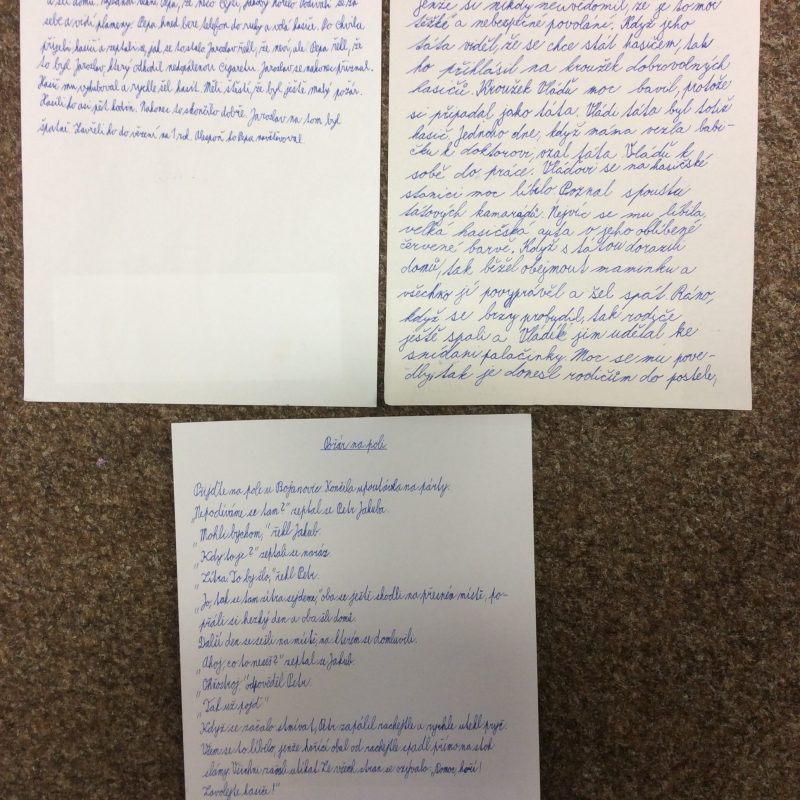 a šli domů.
sebe a vidí plameny. Pepa hned bere telefon do ruky a volá hasiče. Po chvilce
přijeli hasiči a zeptali se, jak se to stalo. Jaroslav řekl, že neví, ale Pepa řekl, že
to byl Jaroslav, který odhodil nedopálenou cigaretu. Jaroslav se nakonec přiznal.
Hasiči mu vyhuboval a rychle šel hasit. Měli štěstí, že byl ještě malý požár.
Hasili ho asi pět hodin. Nakonec to skončilo dobře. Jaroslav na tom byl
špatně. Zavřeli ho do vězení na 1 rok. Alespoň to Pepa navštěvoval.
Jenže si nikdy neuvědomil, že je to moc
těžké a nebezpečné povolání. Když jeho
táta viděl, že se chce stát hasičem, tak
ho přihlásil na kroužek dobrovolných
hasičů. Kroužek Vláďu moc bavil, protože
si připadal jako táta. Vláďi táta byl totiž
hasič. Jednoho dne, když máma vezla babi-
čku k doktorovi, vzal táta Vláďu k
sobě do práce. Vláďovi se na hasičské
stanici moc líbilo. Poznal spoustu
tátových kamarádů. Nejvíc se mu líbila
velká hasičská auta v jeho oblíbené
červené barvě. Když s tátou dorazili
domů, tak běžel obejmout maminku a
všechno jí povyprávěl a šel spát. Ráno,
když se brzy probudil, tak rodiče
ještě spali a Vláďík jim udělal ke
snídani palačinky. Moc se mu pove-
dly, tak je donesl rodičům do postele,
Požár na poli
Přijďte na pole u Bojanovic. Končila upoutávka na párty.
„Nepodíváme se tam?" zeptal se Petr Jakuba.
„Mohli bychom," řekl Jakub.
„Kdy to je?" zeptali se naráz.
„Zítra. To by šlo," řekl Petr.
„Jo, tak se tam zítra sejdeme," oba se ještě shodli na přesném místě, po-
přáli si hezký den a oba šli domů.
Další den se sešli na místě, na kterém se domluvili.
„Ahoj, co to neseš?" zeptal se Jakub.
„Ohňostroj," odpověděl Petr.
„Tak už pojď."
Když se začalo stmívat, Petr zapálil rachejtle a rychle utekl pryč.
Všem se to líbilo, jenže hořící obal od rachejtle spadl přímo na stoh
slámy. Všichni začali utíkat. Ze všech stran se ozývalo: „Pomoc, hoří!
Zavolejte hasiče!"